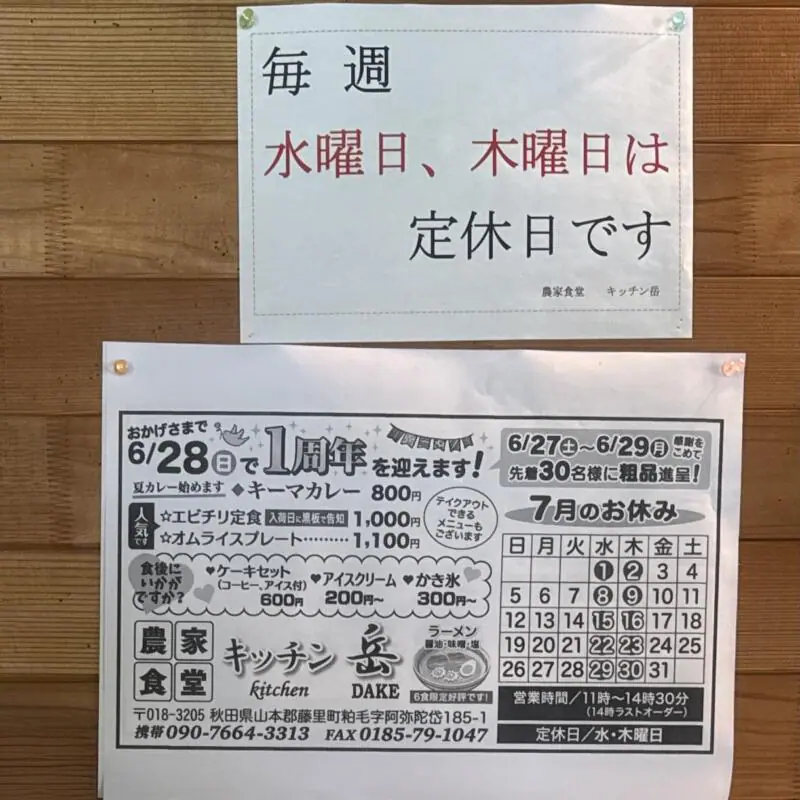 毎週
水曜日、木曜日は
定休日です
農家食堂 キッチン岳
おかげさまで
6/28(日)で1周年を迎えます!
6/27(土)〜6/29(月) 感謝をこめて
先着30名様に粗品進呈!
夏カレー始めます ◆キーマカレー 800円
人気です
☆エビチリ定食 入荷日に黒板で告知 1,000円
☆オムライスプレート……… 1,100円
テイクアウト
できる
メニューも
ございます
食後に
いかが
ですか?
♥ケーキセット
(コーヒー、アイス付)
600円
♥アイスクリーム
200円〜
♥かき氷
300円〜
7月のお休み
日 月 火 水 木 金 土
1 2 3 4
5 6 7 8 9 10 11
12 13 14 15 16 17 18
19 20 21 22 23 24 25
26 27 28 29 30 31
農家
食堂
キッチン 岳
kitchen DAKE
ラーメン
醤油・味噌・塩
6食限定好評です!
営業時間/11時〜14時30分
(14時ラストオーダー)
定休日/水・木曜日
〒018-3205 秋田県山本郡藤里町粕毛字阿弥陀岱185-1
携帯090-7664-3313 FAX0185-79-1047